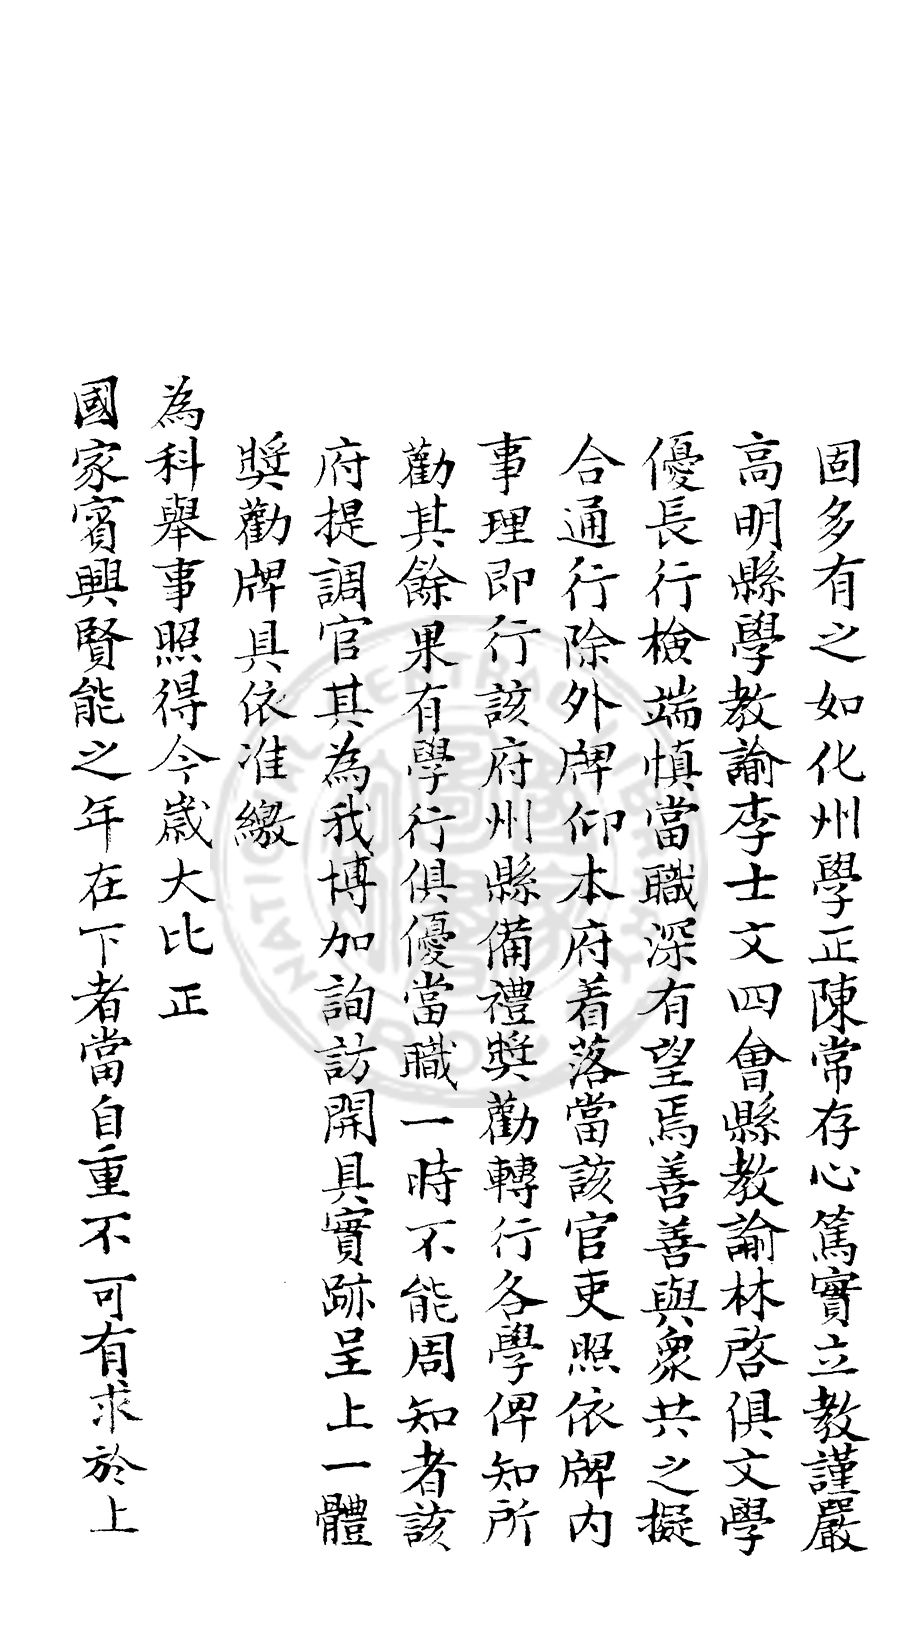 固多有之如化州學正陳常存心篤實立教謹嚴
高明縣學教諭李士文四會縣教諭林啓俱文學
優長行檢端慎當職深有望焉善善與衆共之擬
合通行除外牌仰本府着落當該官吏照依牌內
事理即行該府州縣備禮獎勸轉行各學俾知所
勸其餘果有學行俱優當職一時不能周知者該
府提調官其為我博加詢訪開具實跡呈上一體
獎勸牌具依准繳
為科舉事照得今歲大比正
國家賓興賢能之年在下者當自重不可有求於上